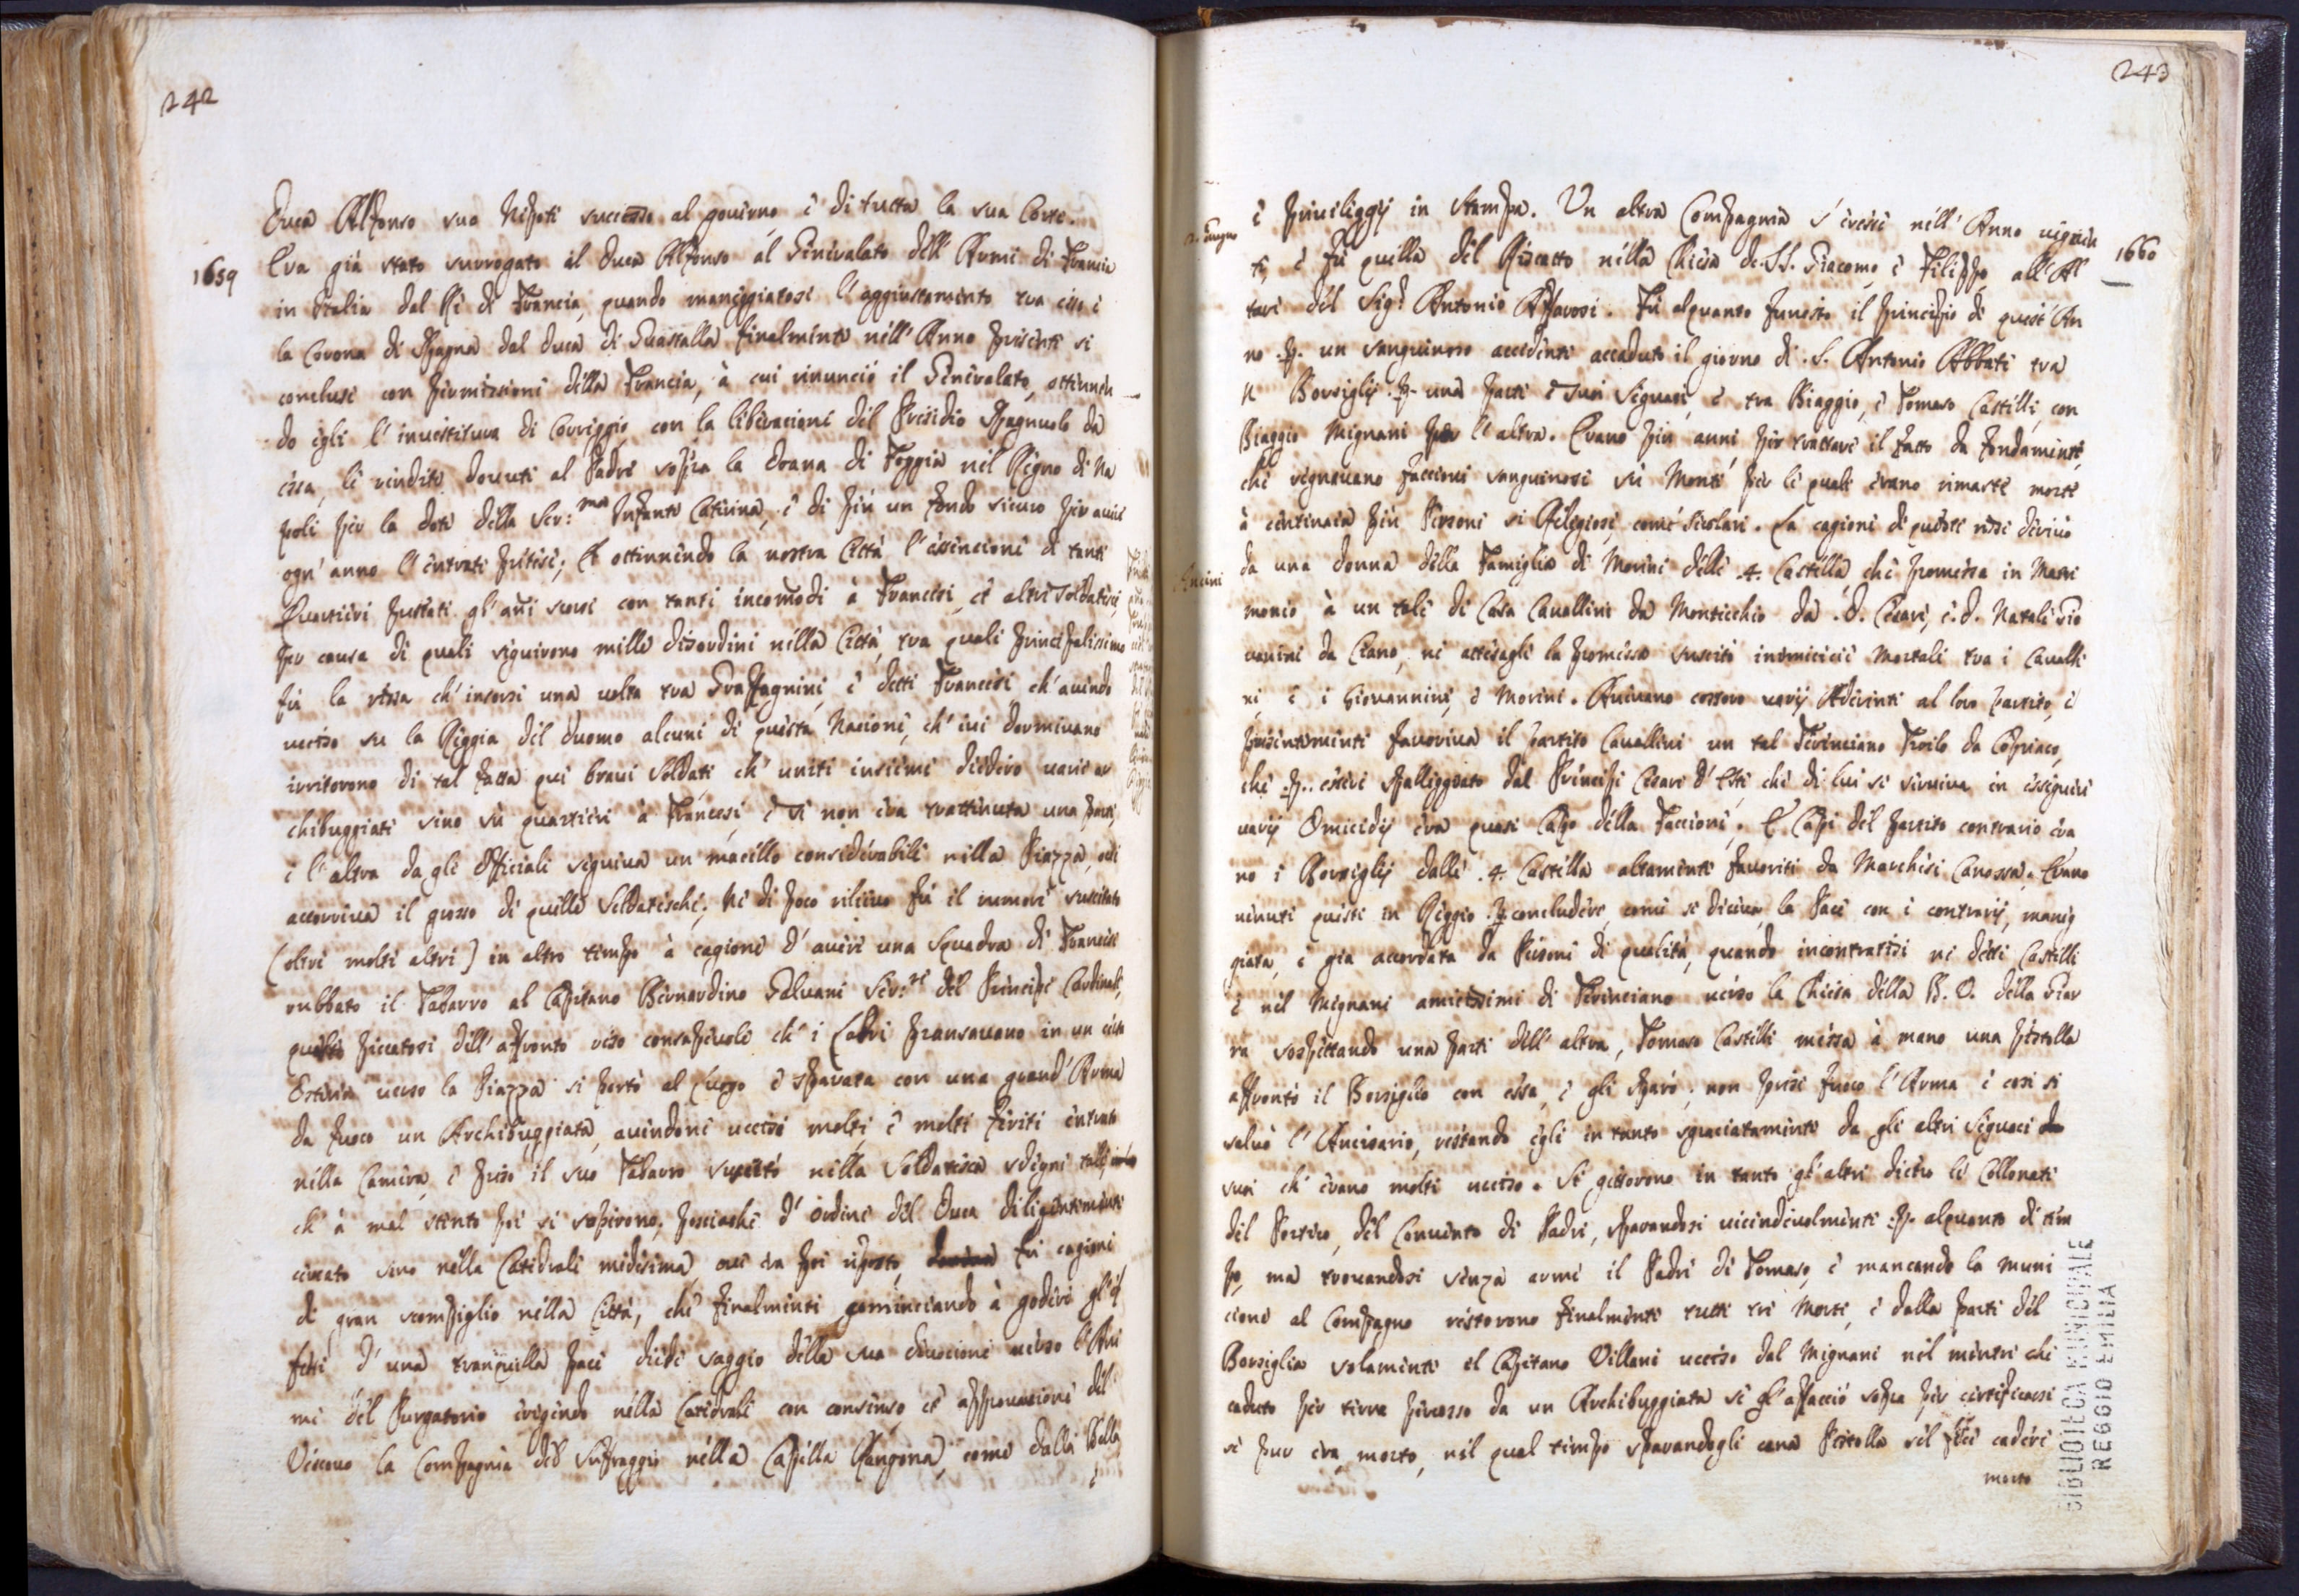 242
Duca Alfonso suo Nipote successo al governo, e di tutta la sua Corte.
1659
Era già stato surrogato il Duca Alfonso al Generalato dell' Armi di Francia
in Italia dal Rè di Francia, quando maneggiatosi l'aggiustamento tra esso e
la Corona di Spagna dal Duca di Guastalla finalmente nell'Anno presente si
concluse con permissione della Francia, à cui rinunciò il Generalato, ottenen
do egli l'investitura di Correggio con la liberacione del Presidio Spagnuolo da
essa, le rendite dovute al Padre sopra la Doana di Foggia nel Regno di Na
poli per la dote della Ser:ma Infante Caterina, e di più un fondo sicuro per avere
ogn'anno l'entrate pretese; Et ottennendo la nostra Città l'essencione di tanti
Quartieri prestati gl'anni scorsi con tanti incomodi à Francesi, et altri Soldatesci
per causa di quali seguirono mille disordini nella Città, tra quali principalissimo
fù la rissa ch'insorse una volta tra Grafagnini, e detti Francesi ch'avendo
ucciso su la Reggia del Duomo alcuni di questa Nacione, ch'ivi dormivano
irritorono di tal fatta que bravi Soldati ch'uniti insieme diedero varie ar
chibuggiate sino sù quartieri à Francesi, e se non era trattenuta una parte,
e l'altra da gli Officiali seguiva un macello considerabile nella Piazza, ove
accorreva il grosso di quelle Soldatesche; Ne di poco rilievo fù il rumore suscitato
(oltre molti altri) in altro tempo à cagione d'avere una Squadra di Francesi
rubbato il Tabarro al Capitano Bernardino Galvani Ser:re del Principe Cardinale,
questo piccatosi dell'affronto reso consapevole ch'i Ladri pransavano in un certa
Osteria verso la Piazza si portò al luogo e sparata con una grand'Arma
da fuoco un Archibuggiata, avendone uccisi molti e molti feriti entrato
nella Camera, e preso il suo Tabarro suscitò nella Soldatesca sdegni tali
ch'à mal stento poi si sopirono; posciache d'ordine del Duca diligentemente
cercato sino nella Catedrale medesima, ove era poi riposto, fù cagione
di gran scompiglio nella Città, che finalmente cominciando à godere gl'ef
fetti d'una tranquilla pace diede saggio della sua divocione verso l'Ani
me del Purgatorio erigendo nella Catedrale con consenso, et approvacione del
Vescovo la Compagnia del Suffraggio nella Capella Rangona, come dalla Bolla
e
243
e Privileggij in Stampa. Un altra Compagnia s'eresse nell'Anno
1660
e fù quella del Riscatto nella Chiesa de SS. Giacomo, e Filippo, all'Al
tare del Sig.r Antonio Affarosi. Fù alquanto funesto il principio di quest'An
no p. un sanguinoso accidente accaduto il giorno di S. Antonio Abbate tra
Borsiglij p. una parte e suoi Seguaci, e tra Biaggio, e Tomaso Castelli, con
Biaggio Mignani per l'altra. Erano più anni per trattare il fatto da fondamenti,
che regnavano faccioni sanguinosi sù Monti, per le quali erano rimaste morte
à centinaia più Persone si Religiosi, come Secolari. La cagione di queste risse derivò
da una Donna della Famiglia di Morini delle 4. Castella che promessa in Matri
monio à un tale di Casa Cavallini da Montecchio da D. Cesare, e D. Natale Gio
vanini da Ciano, ne attesagli la promessa suscitò inimicicie Mortali tra i Cavalli
ni, e i Giovannini, e Morini. Avevano costoro varij Aderenti al loro partito, e
presentemente favoriva il partito Cavallini un tal Terenciano Troilo da Copriaco,
che p. essere spalleggiato dal Principe Cesare d'Este, che di lui si serviva in esseguire
varij Omicidij era quasi Capo della Faccione. E Capi del partito contrario era
no i Borsiglij dalle 4. Castella altamente favoriti da Marchesi Canossa. Erano
venuti questi in Reggio p. concludere, come si diceva la Pace con i contrarij, maneg
giata, e gia accordata da Persone di qualità, quando incontratisi ne detti Castelli
e nel Mignani amicissimi di Terenciano verso la Chiesa della B. V. della Giar
ra sospettando una parte dell'altra, Tomaso Castelli messa à mano una Pistolla
affrontò il Borsiglio con essa, e gli sparò; non prese fuoco l'Arma e così si
salvò l'Aversario, restando egli in tanto sgraciatamente da gli altri Seguaci
suoi ch'erano molti ucciso. Si gettorono in tanto gl'altri dietro le Collonate
del Portico, del Convento di Padri, sparandosi vicendevolmente p. alquanto di tem
po, ma trovandosi senza arme il Padre di Tomaso, e mancando la muni
cione al Compagno restorono finalmente tutti tre Morti, e dalla parte del
Borsiglio solamente il Capitano Villani ucciso dal Mignani nel mentre che
caduto per terra percosso da un Archibuggiata se gl'affacciò sopra per certificarsi
se pur era morto, nel qual tempo sparandogli una Pistolla sel fece cadere
morto
BIBLIOTECA MUNICIPALE
REGGIO EMILIA